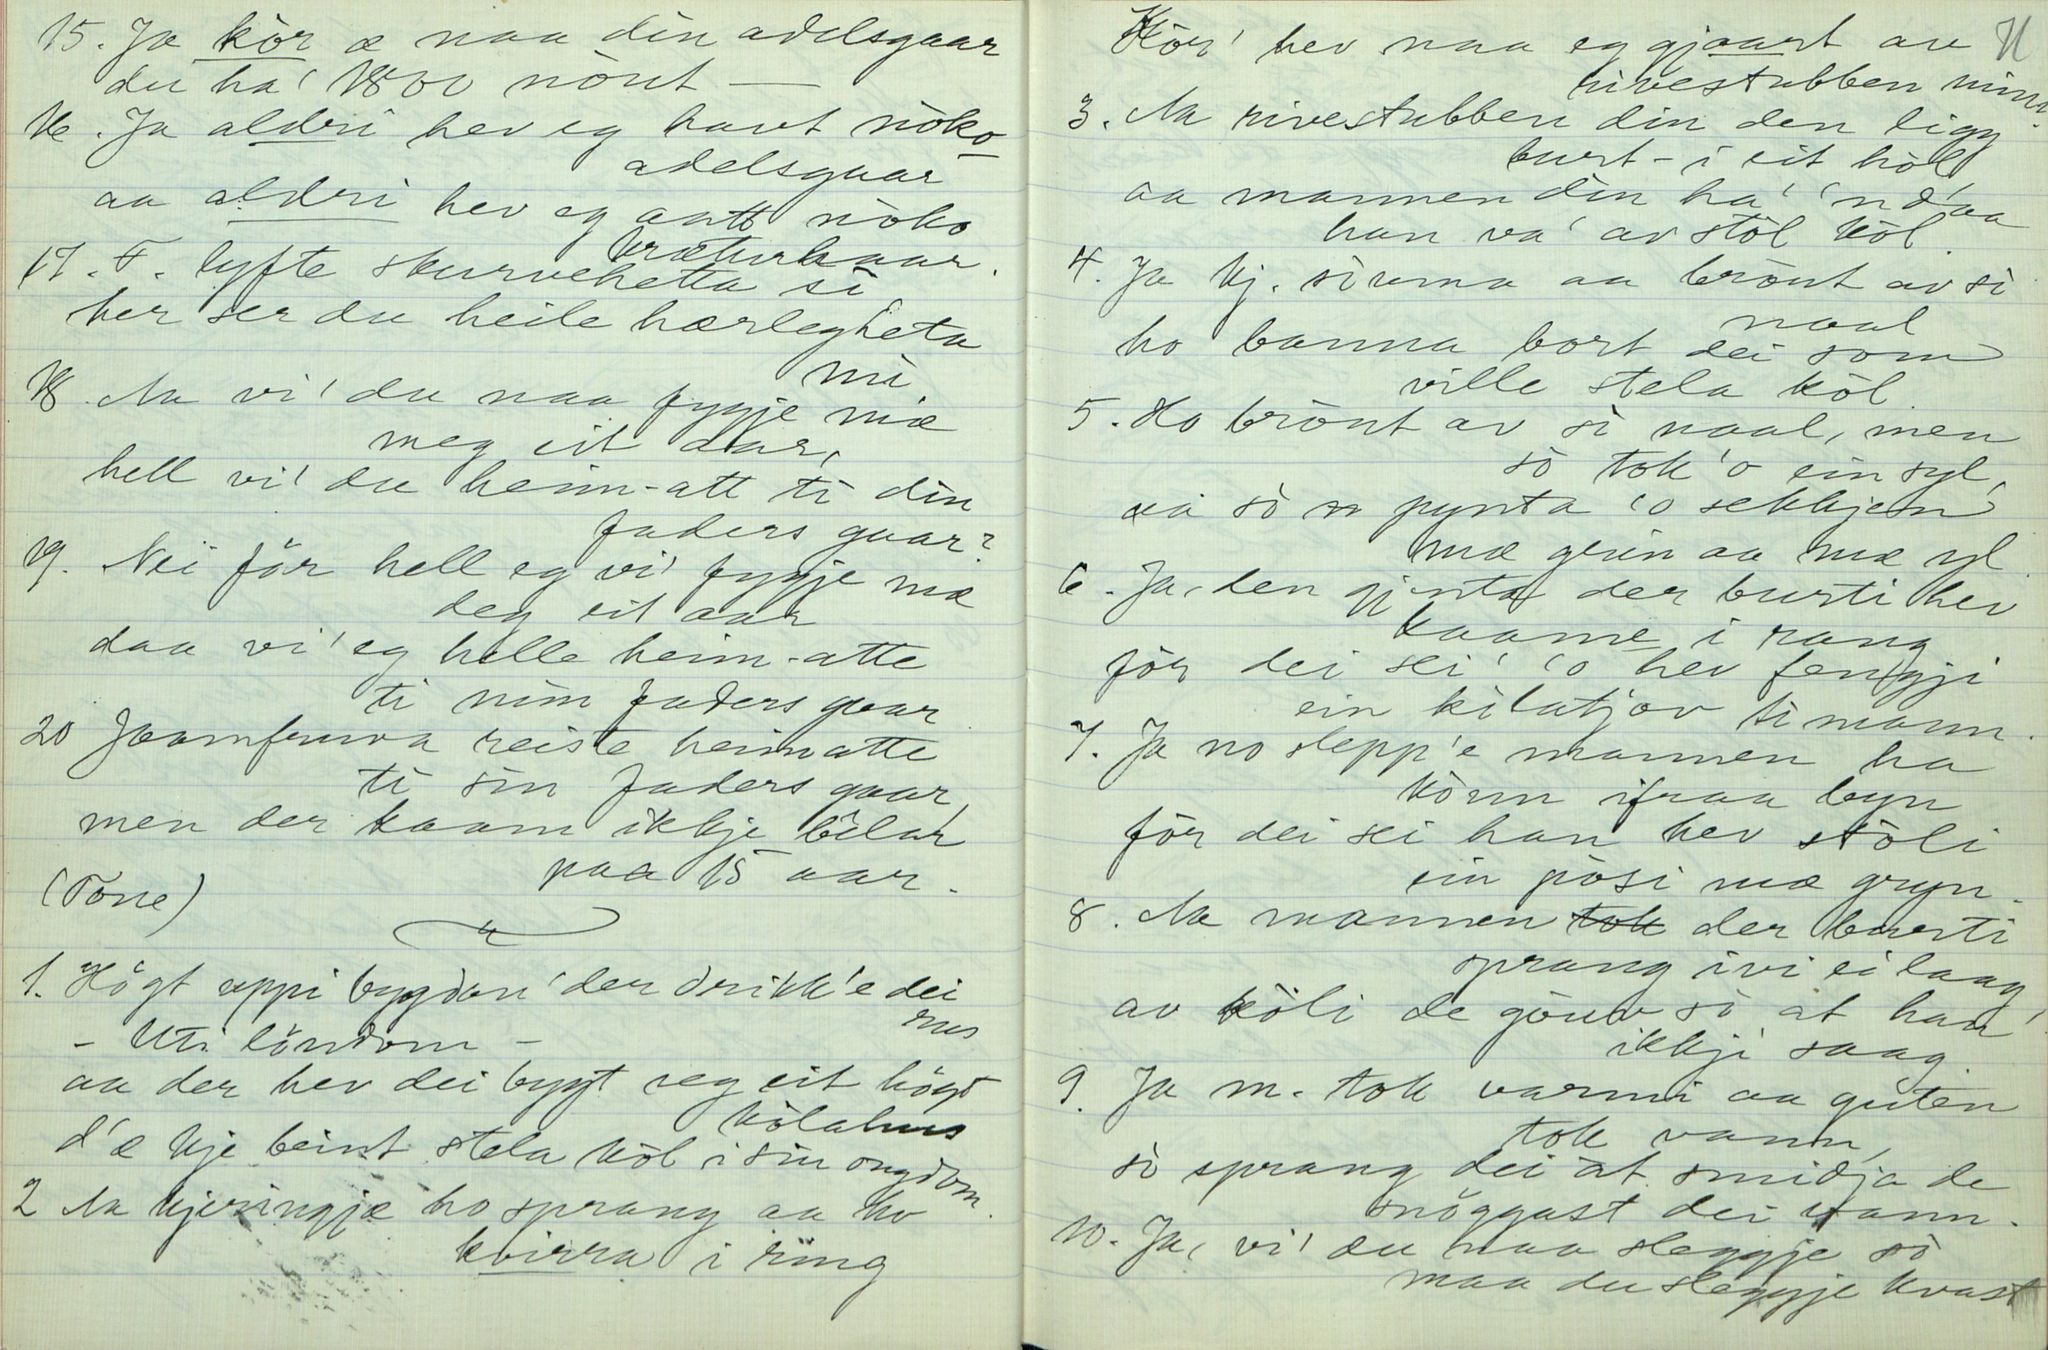 15. Ja kòr æ naa din adelsgaar
du ha' 1800 nònt —
16. Ja aldri hev eg havt nòko
adelsgaar
aa aldri hev eg aatt nòko
kræturkaar.
17. F. lyfte skurvehetta si
her ser du heile hærlegheta
mi
18. Aa vi' du naa fygje mæ
meg eit aar,
hell vi' du heim-att ti din
faders gaar?
19. Nei fòr hell eg vi' fygje mæ
deg eit aar
daa vi' eg helle heim-atte
ti min faders gaar
20 Jaamfruva reiste heimatte
ti sin faders gaar,
men der kaam ikkje bilar
paa 15 aar.
(Tone)
1. Högt uppi bygdon' der drikk'e dei
rus
- Uti löndom -
aa der hev dei bygt seg eit högt
kòlahus
d'æ kje beint stela kòl i sin ongdom.
2 Aa kjeringjæ ho sprang aa ho
kvirra i ring
Kòr' hev naa eg gjaart av 11
rivestubben min.
3. Aa rivestubben din den ligg
burt - i eit hòl
aa mannen din ha' 'n d'aa
han va' av stòl kòl.
4. Ja kj. siuma aa brònt av si
naal
ho banna bort dei som
ville stela kòl.
5. Ho brònt av si naal, men
sò tok 'o ein syl,
aa sò pynta 'o sekkjen
mæ grin aa mæ yl.
6. Ja, den gjenta der burti hev
kaame i rang
fòr dei sei' 'o hev fengji
ein kilatjov ti mann.
7. Ja no slepp'e mannen ha
kònn ifraa byn
fòr dei sei han hev stòli
ein pòsi mæ gryn.
8. Aa mannen tok der burti
sprang ivi ei laag
av kòli de gòuv sò at han
ikkji saag.
9. Ja m. tok varmi aa guten
tok vann,
sò sprang dei at smidja de
snöggast dei vann.
10. Ja, vi' du naa sleggje sò
maa du sleggje kvast